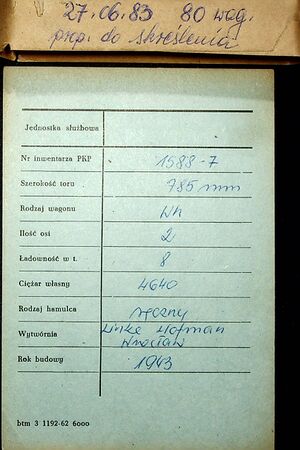 27.06.83 80 wag.
prop. do skreślenia
Jednostka służbowa
Nr inwentarza PKP 1588-7
Szerokość toru 785 mm
Rodzaj wagonu Wh
Ilość osi 2
Ładowność w t. 8
Ciężar własny 4640
Rodzaj hamulca ręczny
Wytwórnia Linke Hofman
Wrocław
Rok budowy 1943
btm 3 1192-62 6000